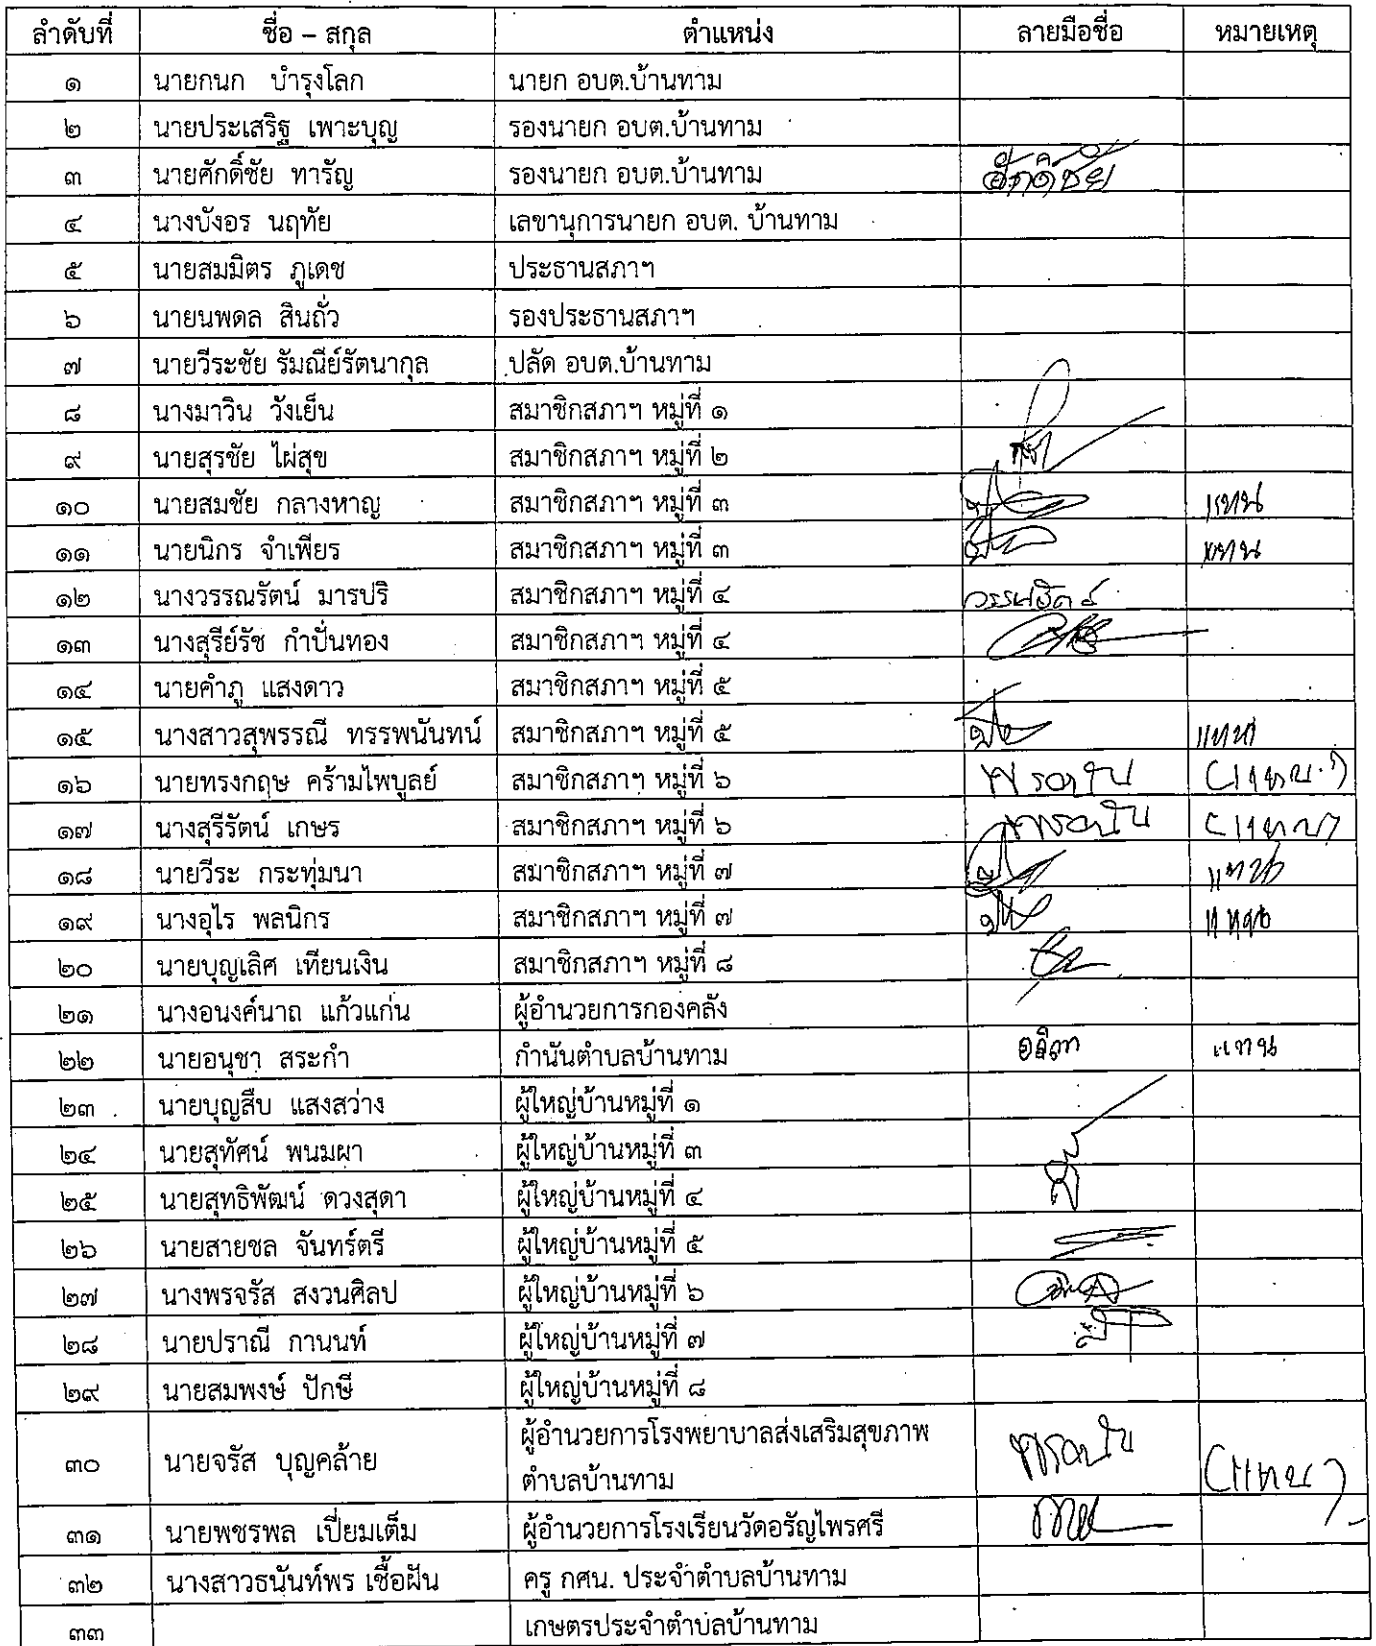 ลำดับที่ ชื่อ – สกุล ตำแหน่ง ลายมือชื่อ หมายเหตุ
๑ นายกนก บำรุงโลก นายก อบต.บ้านทาม
๒ นายประเสริฐ เพาะบุญ รองนายก อบต.บ้านทาม
๓ นายศักดิ์ชัย ทารัญ รองนายก อบต.บ้านทาม ศักดิ์ชัย
๔ นางบังอร นฤทัย เลขานุการนายก อบต. บ้านทาม
๕ นายสมมิตร ภูเดช ประธานสภาฯ
๖ นายนพดล สินถั่ว รองประธานสภาฯ
๗ นายวีระชัย รัมณีย์รัตนากุล ปลัด อบต.บ้านทาม
๘ นางมาวิน วังเย็น สมาชิกสภาฯ หมู่ที่ ๑
๙ นายสุรชัย ไผ่สุข สมาชิกสภาฯ หมู่ที่ ๒
๑๐ นายสมชัย กลางหาญ สมาชิกสภาฯ หมู่ที่ ๓ แทน
๑๑ นายนิกร จำเพียร สมาชิกสภาฯ หมู่ที่ ๓ แทน
๑๒ นางวรรณรัตน์ มารปริ สมาชิกสภาฯ หมู่ที่ ๔ วรรณรัตน์
๑๓ นางสุรีย์รัช กำปั่นทอง สมาชิกสภาฯ หมู่ที่ ๔
๑๔ นายคำภู แสงดาว สมาชิกสภาฯ หมู่ที่ ๕
๑๕ นางสาวสุพรรณี ทรรพนันทน์ สมาชิกสภาฯ หมู่ที่ ๕ แทน
๑๖ นายทรงกฤษ คร้ามไพบูลย์ สมาชิกสภาฯ หมู่ที่ ๖ (แทน)
๑๗ นางสุรีรัตน์ เกษร สมาชิกสภาฯ หมู่ที่ ๖ (แทน)
๑๘ นายวีระ กระทุ่มนา สมาชิกสภาฯ หมู่ที่ ๗ แทน
๑๙ นางอุไร พลนิกร สมาชิกสภาฯ หมู่ที่ ๗ แทน
๒๐ นายบุญเลิศ เทียนเงิน สมาชิกสภาฯ หมู่ที่ ๘
๒๑ นางอนงค์นาถ แก้วแก่น ผู้อำนวยการกองคลัง
๒๒ นายอนุชา สระกำ กำนันตำบลบ้านทาม แทน
๒๓ นายบุญสืบ แสงสว่าง ผู้ใหญ่บ้านหมู่ที่ ๑
๒๔ นายสุทัศน์ พนมผา ผู้ใหญ่บ้านหมู่ที่ ๓
๒๕ นายสุทธิพัฒน์ ดวงสุดา ผู้ใหญ่บ้านหมู่ที่ ๔
๒๖ นายสายชล จันทร์ตรี ผู้ใหญ่บ้านหมู่ที่ ๕
๒๗ นางพรจรัส สงวนศิลป ผู้ใหญ่บ้านหมู่ที่ ๖
๒๘ นายปราณี กานนท์ ผู้ใหญ่บ้านหมู่ที่ ๗
๒๙ นายสมพงษ์ ปักษี ผู้ใหญ่บ้านหมู่ที่ ๘
๓๐ นายจรัส บุญคล้าย ผู้อำนวยการโรงพยาบาลส่งเสริมสุขภาพ
ตำบลบ้านทาม (แทน)
๓๑ นายพชรพล เปี่ยมเต็ม ผู้อำนวยการโรงเรียนวัดอรัญไพรศรี
๓๒ นางสาวธนันท์พร เชื้อฝัน ครู กศน. ประจำตำบลบ้านทาม
๓๓ เกษตรประจำตำบลบ้านทาม